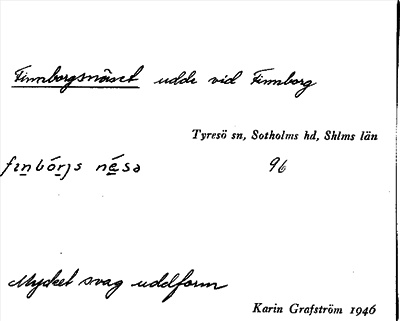 Finnborgsnäset udde vid Finnborg
Tyresö sn, Sotholms hd, Shlms län
finbórjs nésə 96
Mycket svag uddform
Karin Grafström 1946